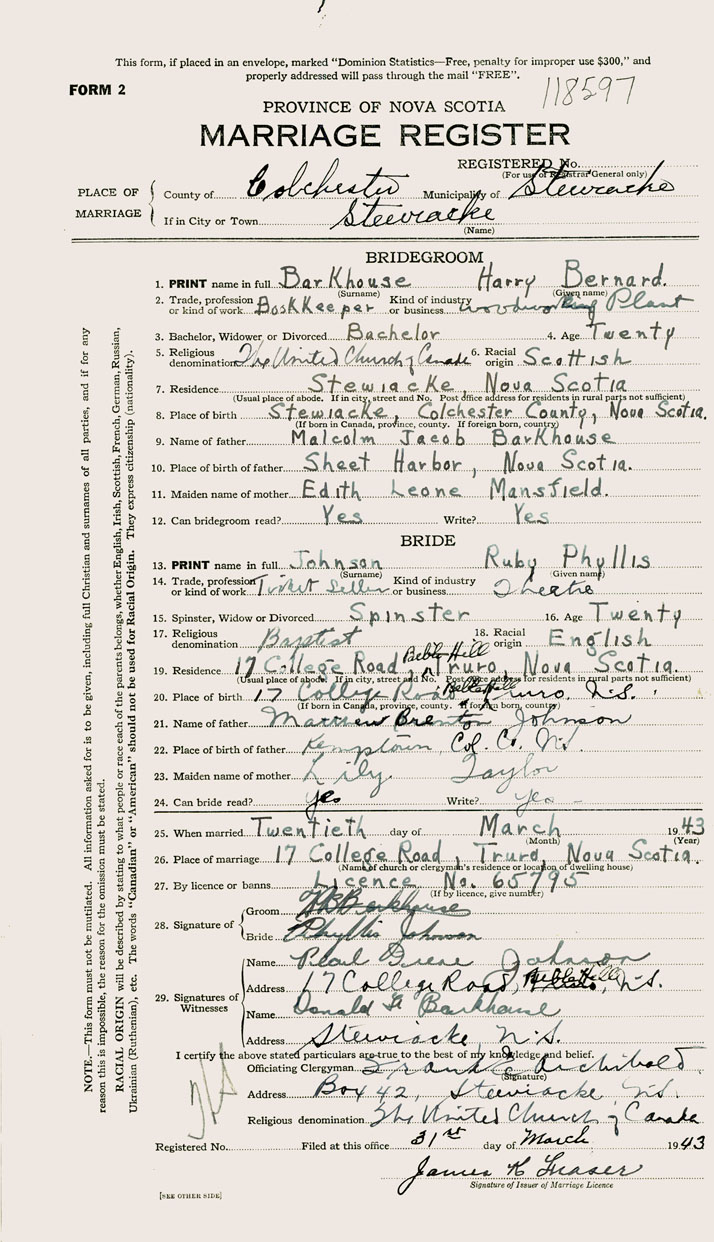 This form, if placed in an envelope, marked "Dominion Statistics—Free, penalty for improper use $300," and
properly addressed will pass through the mail "FREE".
FORM 2
118597
PROVINCE OF NOVA SCOTIA
MARRIAGE REGISTER
REGISTERED No.
(For use of Registrar General only)
PLACE OF MARRIAGE
County of Colchester Municipality of Stewiacke
If in City or Town Stewiacke
(Name)
BRIDEGROOM
1. PRINT name in full BarKhouse Harry Bernard.
(Surname) (Given name)
2. Trade, profession or kind of work BookKeeper Kind of industry or business Woodworking Plant
3. Bachelor, Widower or Divorced Bachelor 4. Age Twenty
5. Religious denomination The United Church of Canada 6. Racial origin Scottish
7. Residence Stewiacke, Nova Scotia
(Usual place of abode. If in city, street and No. Post office address for residents in rural parts not sufficient)
8. Place of birth Stewiacke, Colchester County, Nova Scotia.
(If born in Canada, province, county. If foreign born, country)
9. Name of father Malcolm Jacob BarKhouse
10. Place of birth of father Sheet Harbor, Nova Scotia.
11. Maiden name of mother Edith Leone Mansfield.
12. Can bridegroom read? Yes Write? Yes
BRIDE
13. PRINT name in full Johnson Ruby Phyllis
(Surname) (Given name)
14. Trade, profession or kind of work Ticket Seller Kind of industry or business Theatre
15. Spinster, Widow or Divorced Spinster 16. Age Twenty
17. Religious denomination Baptist 18. Racial origin English
Bible Hill
19. Residence 17 College Road, Truro, Nova Scotia.
(Usual place of abode. If in city, street and No. Post office address for residents in rural parts not sufficient)
Bible Hill
20. Place of birth 17 College Road Truro, N.S.
(If born in Canada, province, county. If foreign born, country)
21. Name of father Matthew Brenton Johnson
22. Place of birth of father Kemptown, Col. Co. N.S.
23. Maiden name of mother Lily Taylor
24. Can bride read? yes Write? yes
25. When married Twentieth day of March 1943
(Month) (Year)
26. Place of marriage 17 College Road, Truro, Nova Scotia.
(Name of church or clergyman's residence or location of dwelling house)
27. By licence or banns Licence No. 65795
(If by licence, give number)
28. Signature of
Groom H B Barkhouse
Bride Phyllis Johnson
29. Signatures of Witnesses
Name Pearl Johnson
Address 17 College Road, Bible Hill, N.S.
Name Donald Barkhouse
Address Stewiacke, N.S.
I certify the above stated particulars are true to the best of my knowledge and belief.
Officiating Clergyman Frank E Archibald
(Signature)
Address Box 42, Stewiacke N.S.
Religious denomination The United Church of Canada
Registered No. Filed at this office 31st day of March 1943
James K Fraser
Signature of Issuer of Marriage Licence
[SEE OTHER SIDE]
NOTE.—This form must not be mutilated. All information asked for is to be given, including full Christian and surnames of all parties, and if for any
reason this is impossible, the reason for the omission must be stated.
RACIAL ORIGIN will be described by stating to what people or race each of the parents belongs, whether English, Irish, Scottish, French, German, Russian,
Ukrainian (Ruthenian), etc. The words "Canadian" or "American" should not be used for Racial Origin. They express citizenship (nationality).